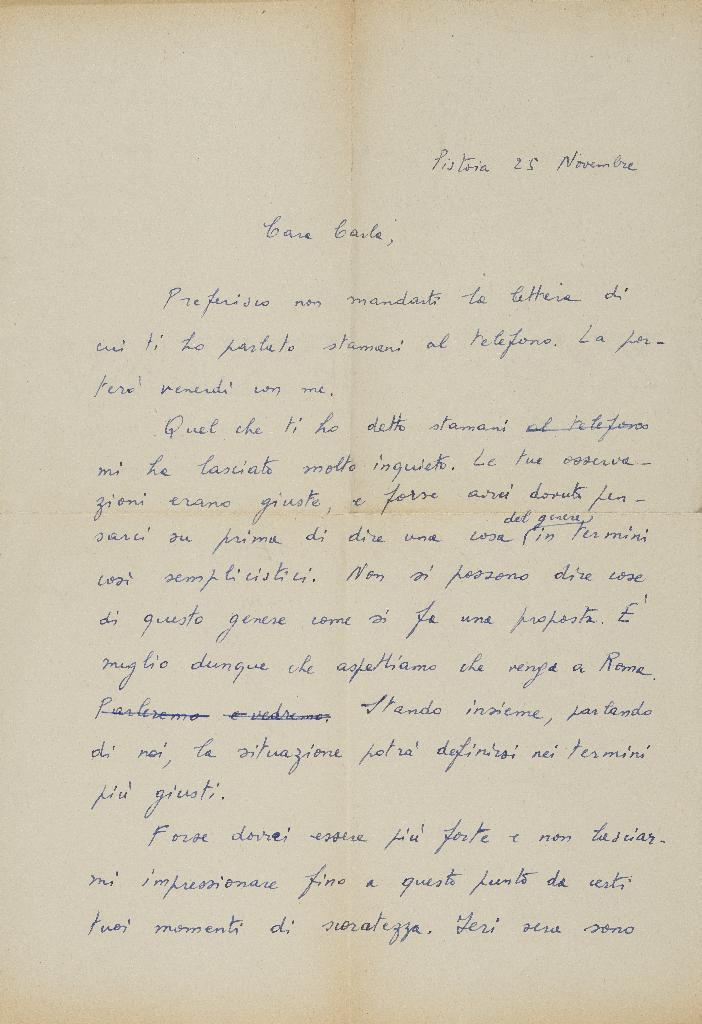 Pistoia 25 Novembre
Cara Carla,
Preferisco non mandarti la lettera di
cui ti ho parlato stamani al telefono. La por-
terò venerdì con me.
Quel che ti ho detto stamani al telefono
mi ha lasciato molto inquieto. Le tue osserva-
zioni erano giuste, e forse avrei dovuto pen-
sarci su prima di dire una cosa del genere in termini
così semplicistici. Non si possono dire cose
di questo genere come si fa una proposta. È
meglio dunque che aspettiamo che venga a Roma.
Parleremo e vedremo. Stando insieme, parlando
di noi, la situazione potrà definirsi nei termini
più giusti.
Forse dovrei essere più forte e non lasciar-
mi impressionare fino a questo punto da certi
tuoi momenti di scoratezza. Ieri sera sono